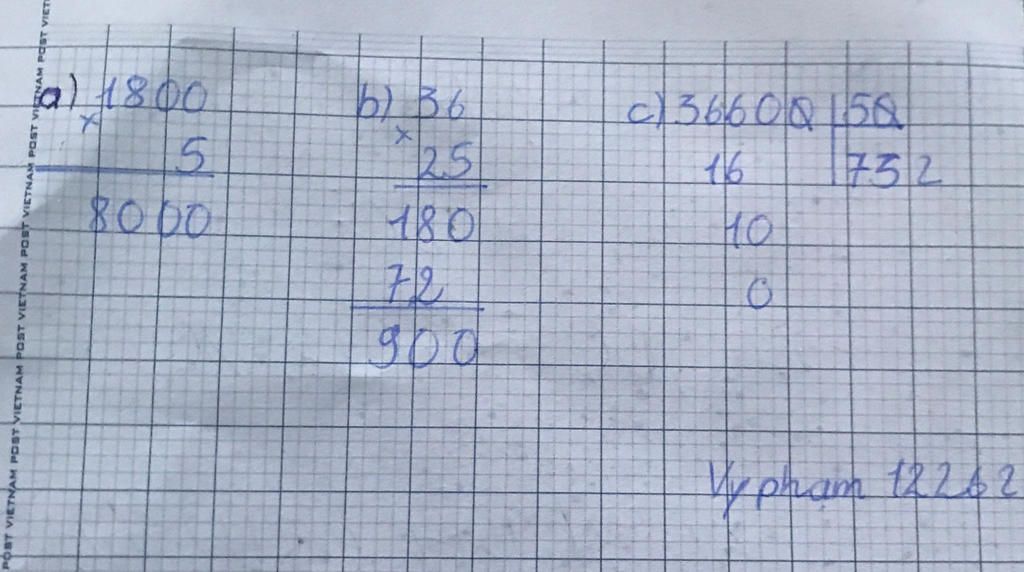 a) 1800
x
5
8000
b) 36
x
25
180
72
900
c) 36600 50
16 732
10
0
Vy pham 12262
POST VIETNAM POST VIETNAM POST VIETNAM POST VIETNAM POST VIETNAM POST VIET